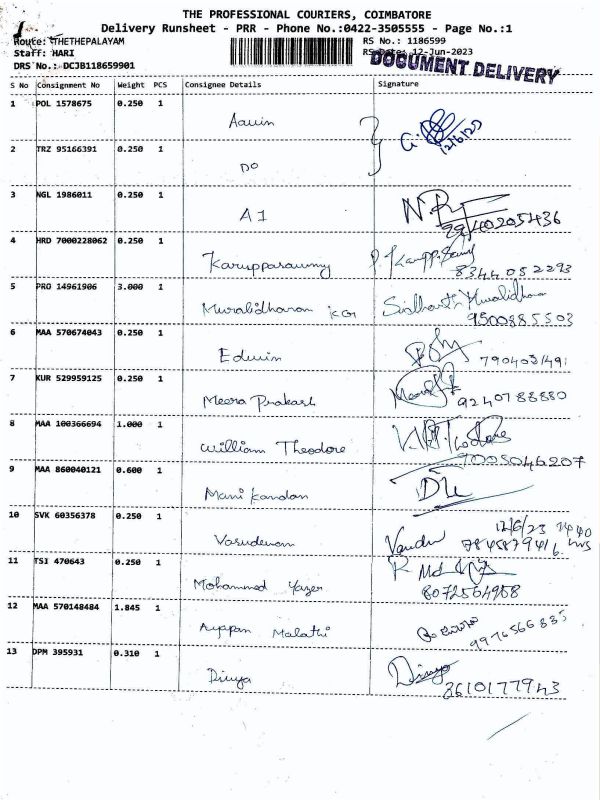 THE PROFESSIONAL COURIERS, COIMBATORE
Delivery Runsheet - PRR - Phone No.:0422-3505555 - Page No.:1
Route: THETHEPALAYAM
RS No.: 1186599
Staff: HARI
RS Date: 12-Jun-2023
DRS No.: DCJB118659901
DOCUMENT DELIVERY
S No Consignment No Weight PCS Consignee Details Signature
1 POL 1578675 0.250 1
Aavin
12/6/23
2 TRZ 95166391 0.250 1
DO
3 NGL 1986011 0.250 1
A1
4 HRD 7000228062 0.250 1
Karupposawmy
8344052293
5 PRO 14961906 3.000 1
Muralidharan KGI Sidharth Muralidharan
9500885503
6 MAA 570674043 0.250 1
Edwin
7 KUR 529959125 0.250 1
Meera Prakash 9240788880
8 MAA 100366694 1.000 1
William Theodore
9005046207
9 MAA 860040121 0.600 1
Mani kandan
10 SVK 60356378 0.250 1
12/6/23
Vasudevan
11 TSI 470643 0.250 1
Mohammed Yaser
8072564958
12 MAA 570148484 1.845 1
Ayppan Malathi
9976566835
13 DPM 395931 0.310 1
Divya Divya